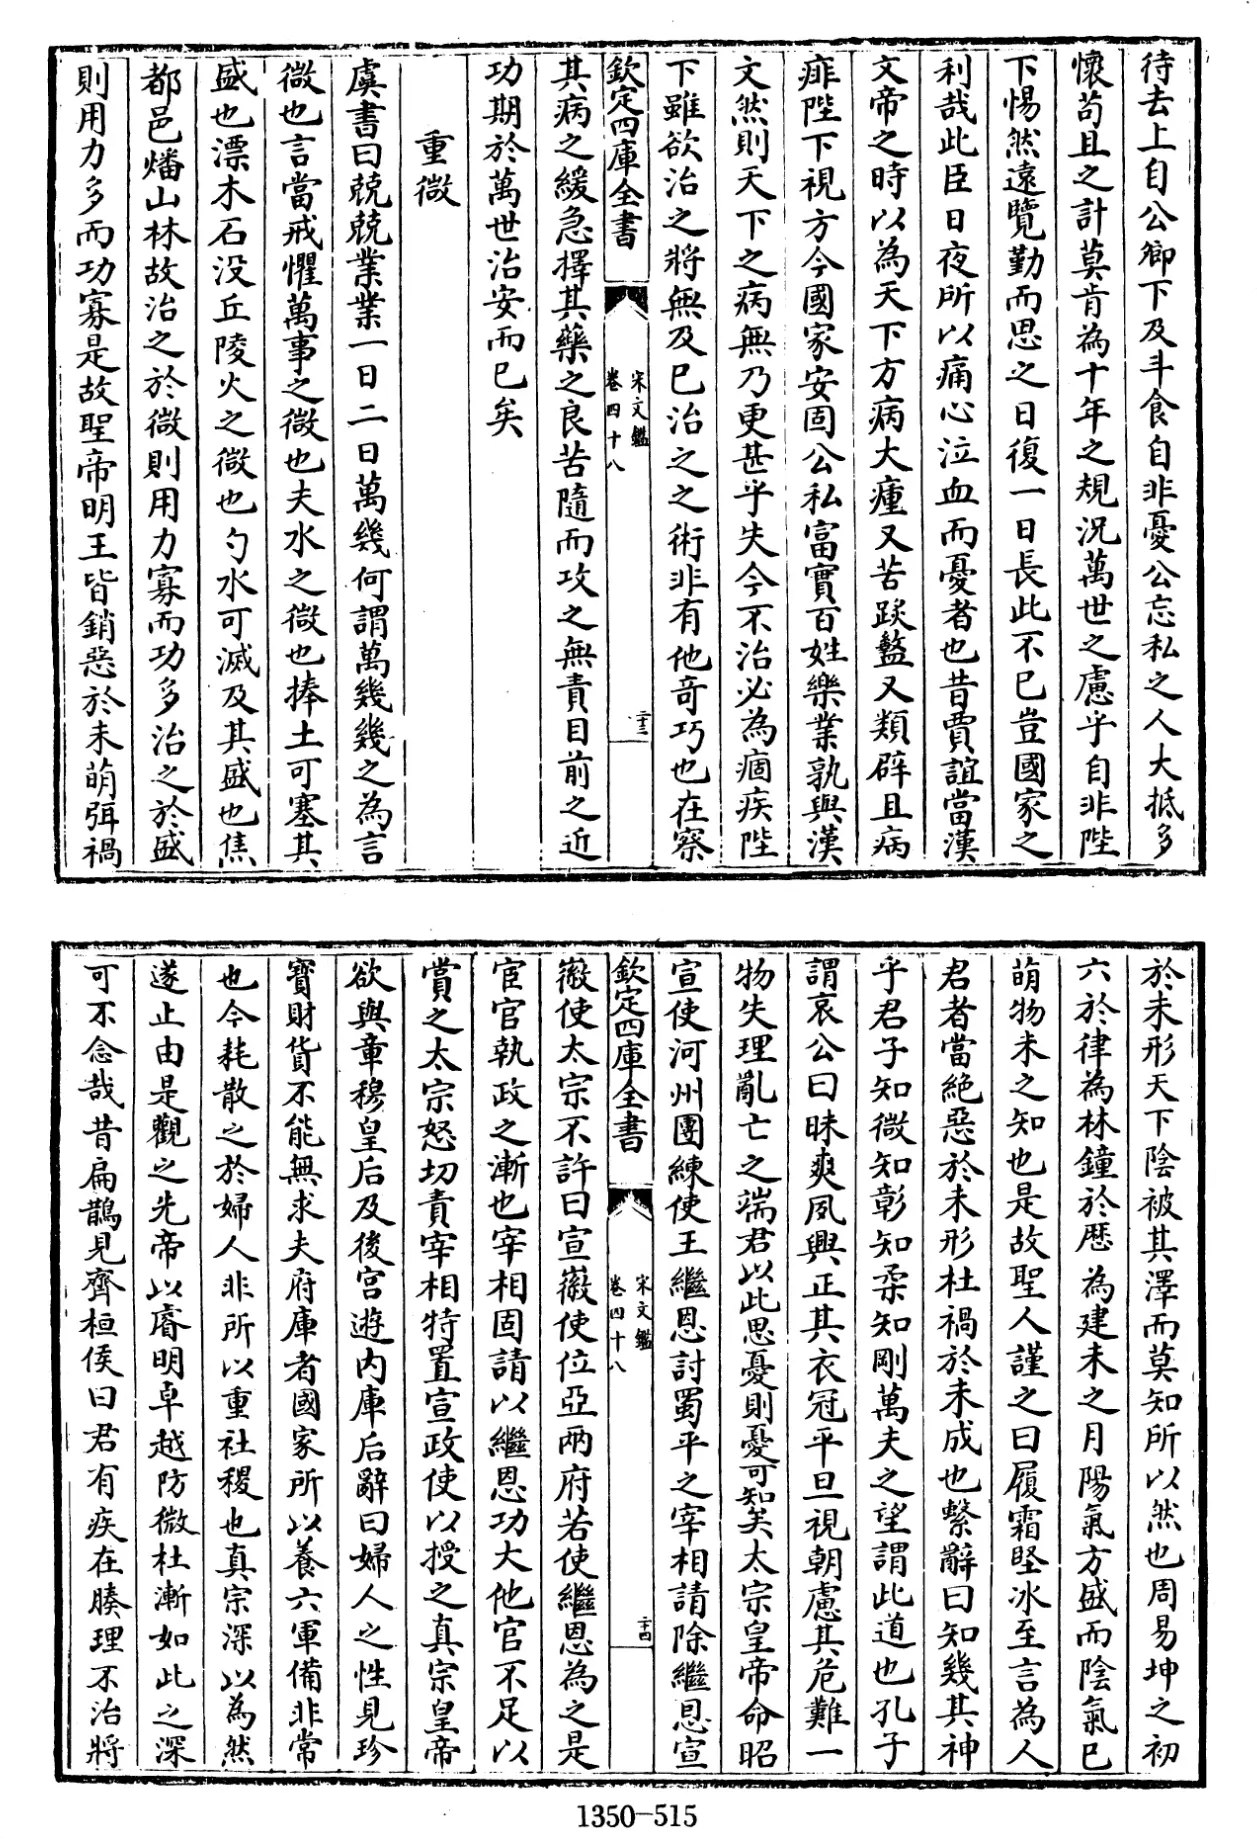 待去上自公卿下及斗食自非憂公忘私之人大抵多
懷苟且之計莫肯為十年之規况萬世之慮乎自非陛
下惕然遠覽勤而思之日復一日長此不已豈國家之
利哉此臣日夜所以痛心泣血而憂者也昔賈誼當漢
文帝之時以為天下方病大瘇又苦䟦盭又類辟且病
痱陛下視方今國家安固公私富實百姓樂業孰與漢
文然則天下之病無乃更甚乎失今不治必為痼疾陛
下雖欲治之將無及已治之之術非有他奇巧也在察
欽定四庫全書
宋文鑑
卷四十八
二十三
其病之緩急擇其藥之良苦隨而攻之無責目前之近
功期於萬世治安而已矣
重微
虞書曰兢兢業業一日二日萬幾何謂萬幾幾之為言
微也言當戒懼萬事之微也夫水之微也捧土可塞其
盛也漂木石没丘陵火之微也勺水可滅及其盛也焦
都邑燔山林故治之於微則用力寡而功多治之於盛
則用力多而功寡是故聖帝明王皆銷惡於未萌弭禍
於未形天下陰被其澤而莫知所以然也周易坤之初
六於律為林鐘於歴為建未之月陽氣方盛而陰氣已
萌物未之知也是故聖人謹之曰履霜堅冰至言為人
君者當絶惡於未形杜禍於未成也繫辭曰知幾其神
乎君子知微知彰知柔知剛萬夫之望謂此道也孔子
謂哀公曰昧爽夙興正其衣冠平旦視朝慮其危難一
物失理亂亡之端君以此思憂則憂可知矣太宗皇帝命昭
宣使河州團練使王繼恩討蜀平之宰相請除繼恩宣
欽定四庫全書
宋文鑑
卷四十八
二十四
徽使太宗不許曰宣徽使位亞兩府若使繼恩為之是
宦官執政之漸也宰相固請以繼恩功大他官不足以
賞之太宗怒切責宰相特置宣政使以授之真宗皇帝
欲與章穆皇后及後宫遊内庫后辭曰婦人之性見珍
寶財貨不能無求夫府庫者國家所以養六軍備非常
也今耗散之於婦人非所以重社稷也真宗深以為然
遂止由是觀之先帝以睿明卓越防微杜漸如此之深
可不念哉昔扁鵲見齊桓侯曰君有疾在腠理不治將
1350-515